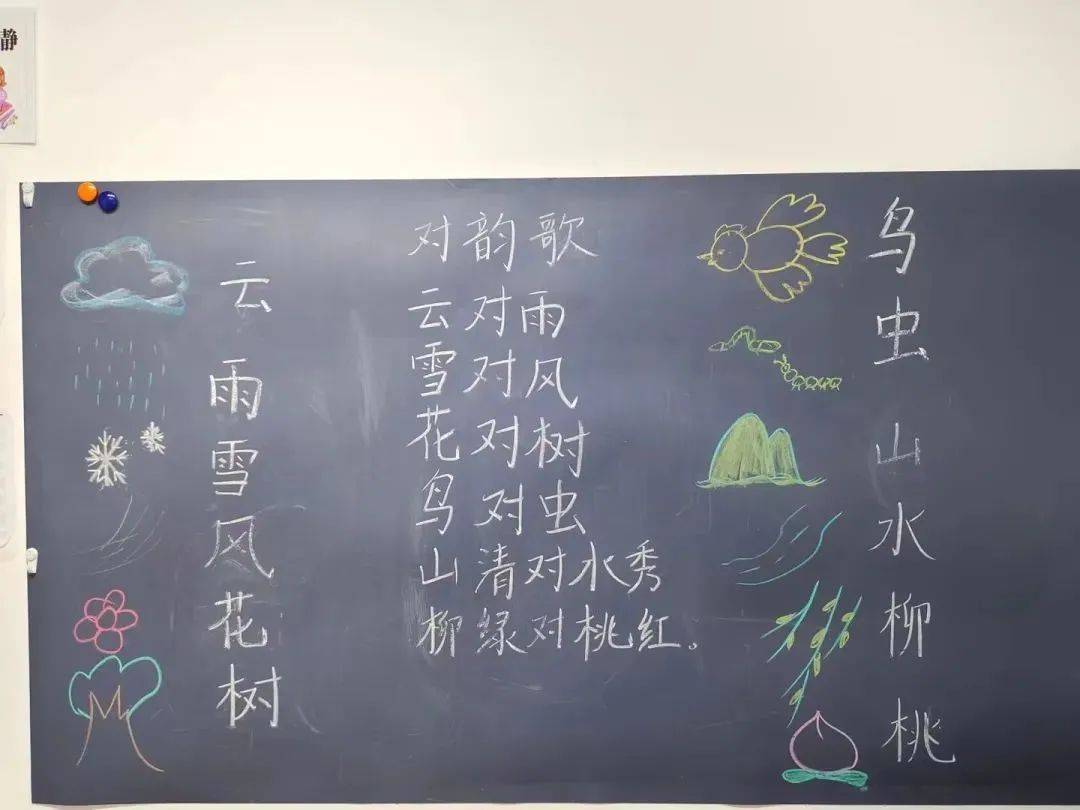 静
云
雨
雪
风
花
树
对韵歌
云对雨
雪对风
花对树
鸟对虫
山清对水秀
柳绿对桃红。
鸟
虫
山
水
柳
桃